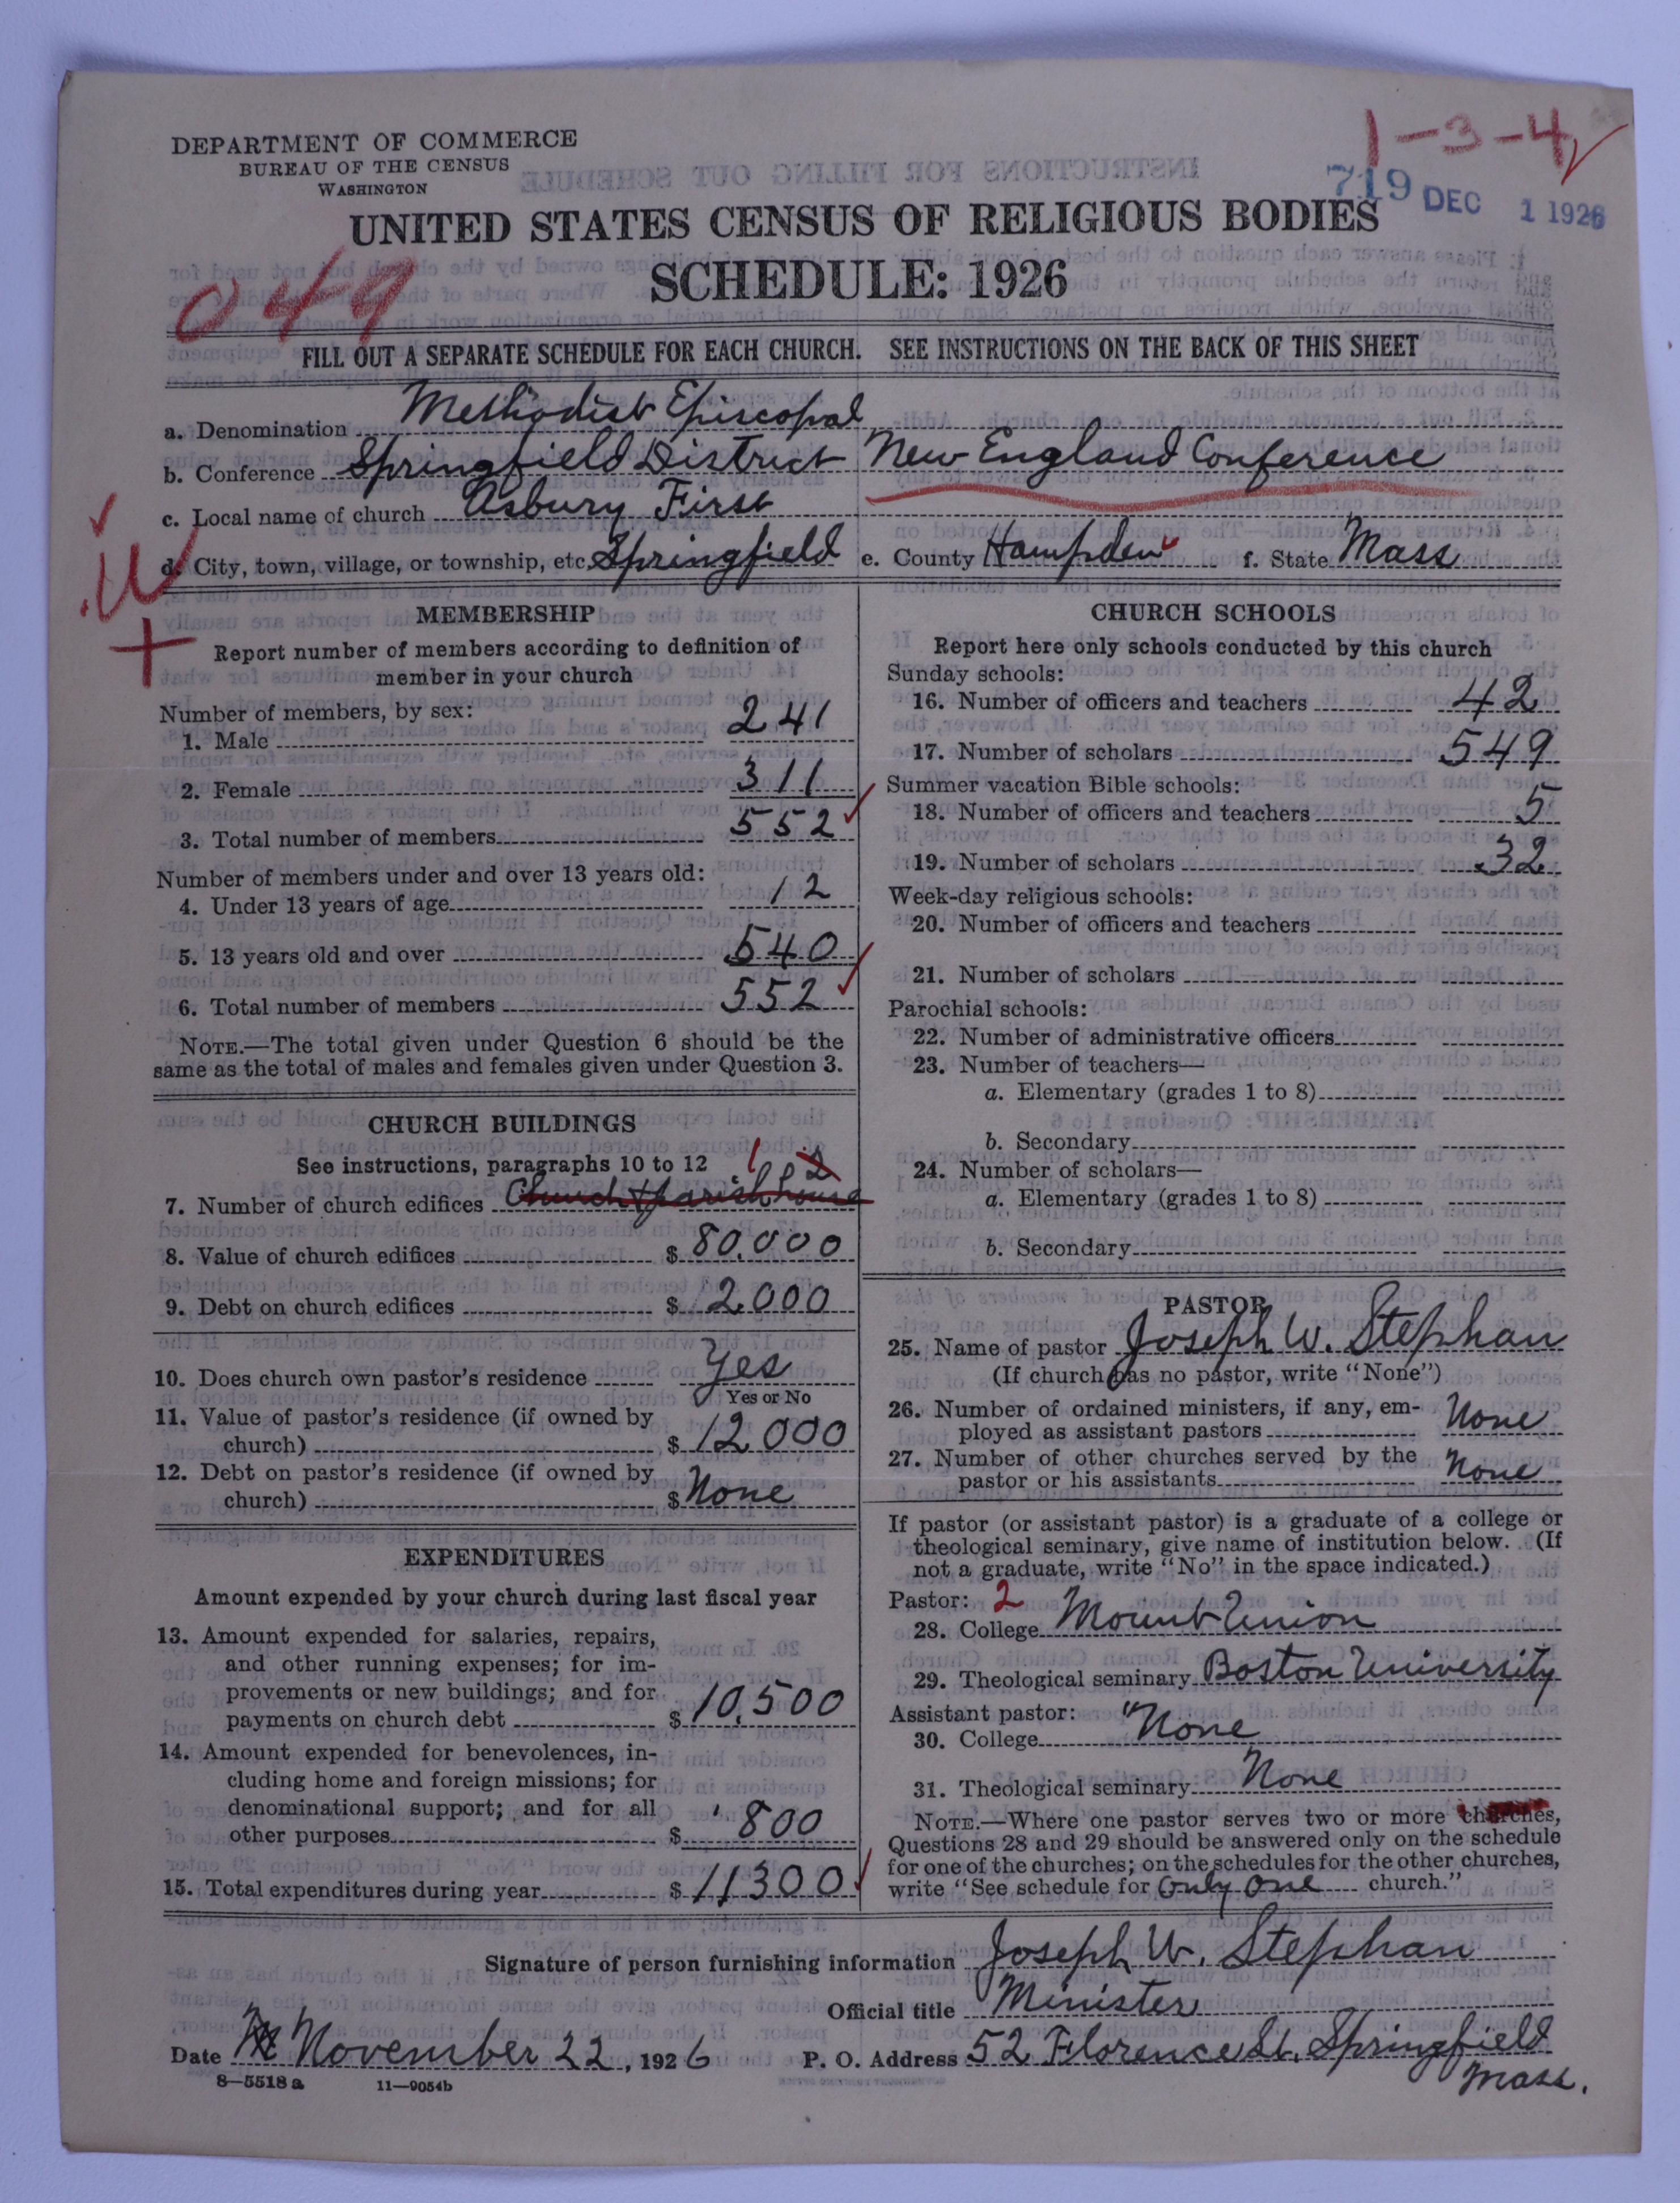 1-3-4
DEPARTMENT OF COMMERCE
BUREAU OF THE CENSUS
WASHINGTON
719 DEC 1 1926
UNITED STATES CENSUS OF RELIGIOUS BODIES
SCHEDULE: 1926
049
FILL OUT A SEPARATE SCHEDULE FOR EACH CHURCH. SEE INSTRUCTIONS ON THE BACK OF THIS SHEET
a. Denomination Methodist Episcopal
b. Conference Springfield District New England Conference
c. Local name of church Asbury First
d. City, town, village, or township, etc. Springfield e. County Hampden f. State Mass
MEMBERSHIP
Report number of members according to definition of
member in your church
Number of members, by sex:
1. Male 241
2. Female 311
3. Total number of members 552
Number of members under and over 13 years old:
4. Under 13 years of age 12
5. 13 years old and over 540
6. Total number of members 552
NOTE.—The total given under Question 6 should be the
same as the total of males and females given under Question 3.
CHURCH BUILDINGS
See instructions, paragraphs 10 to 12 1 2
7. Number of church edifices Church & parish house
8. Value of church edifices $ 80,000
9. Debt on church edifices $ 2,000
10. Does church own pastor's residence Yes
Yes or No
11. Value of pastor's residence (if owned by
church) $ 12000
12. Debt on pastor's residence (if owned by
church) $ None
EXPENDITURES
Amount expended by your church during last fiscal year
13. Amount expended for salaries, repairs,
and other running expenses; for im-
provements or new buildings; and for
payments on church debt $ 10,500
14. Amount expended for benevolences, in-
cluding home and foreign missions; for
denominational support; and for all
other purposes $ 800
15. Total expenditures during year $ 11300
CHURCH SCHOOLS
Report here only schools conducted by this church
Sunday schools:
16. Number of officers and teachers 42
17. Number of scholars 549
Summer vacation Bible schools:
18. Number of officers and teachers 5
19. Number of scholars 32
Week-day religious schools:
20. Number of officers and teachers
21. Number of scholars
Parochial schools:
22. Number of administrative officers
23. Number of teachers—
a. Elementary (grades 1 to 8)
b. Secondary
24. Number of scholars—
a. Elementary (grades 1 to 8)
b. Secondary
PASTOR
25. Name of pastor Joseph W. Stephan
(If church has no pastor, write "None")
26. Number of ordained ministers, if any, em-
ployed as assistant pastors None
27. Number of other churches served by the
pastor or his assistants None
If pastor (or assistant pastor) is a graduate of a college or
theological seminary, give name of institution below. (If
not a graduate, write "No" in the space indicated.)
Pastor: 2
28. College Mount Union
29. Theological seminary Boston University
Assistant pastor:
30. College None
31. Theological seminary None
NOTE.—Where one pastor serves two or more churches,
Questions 28 and 29 should be answered only on the schedule
for one of the churches; on the schedules for the other churches,
write "See schedule for only one church."
Signature of person furnishing information Joseph W. Stephan
Official title Minister
Date November 22, 1926 P. O. Address 52 Florence St. Springfield
Mass.
8—5518 a 11—9054b